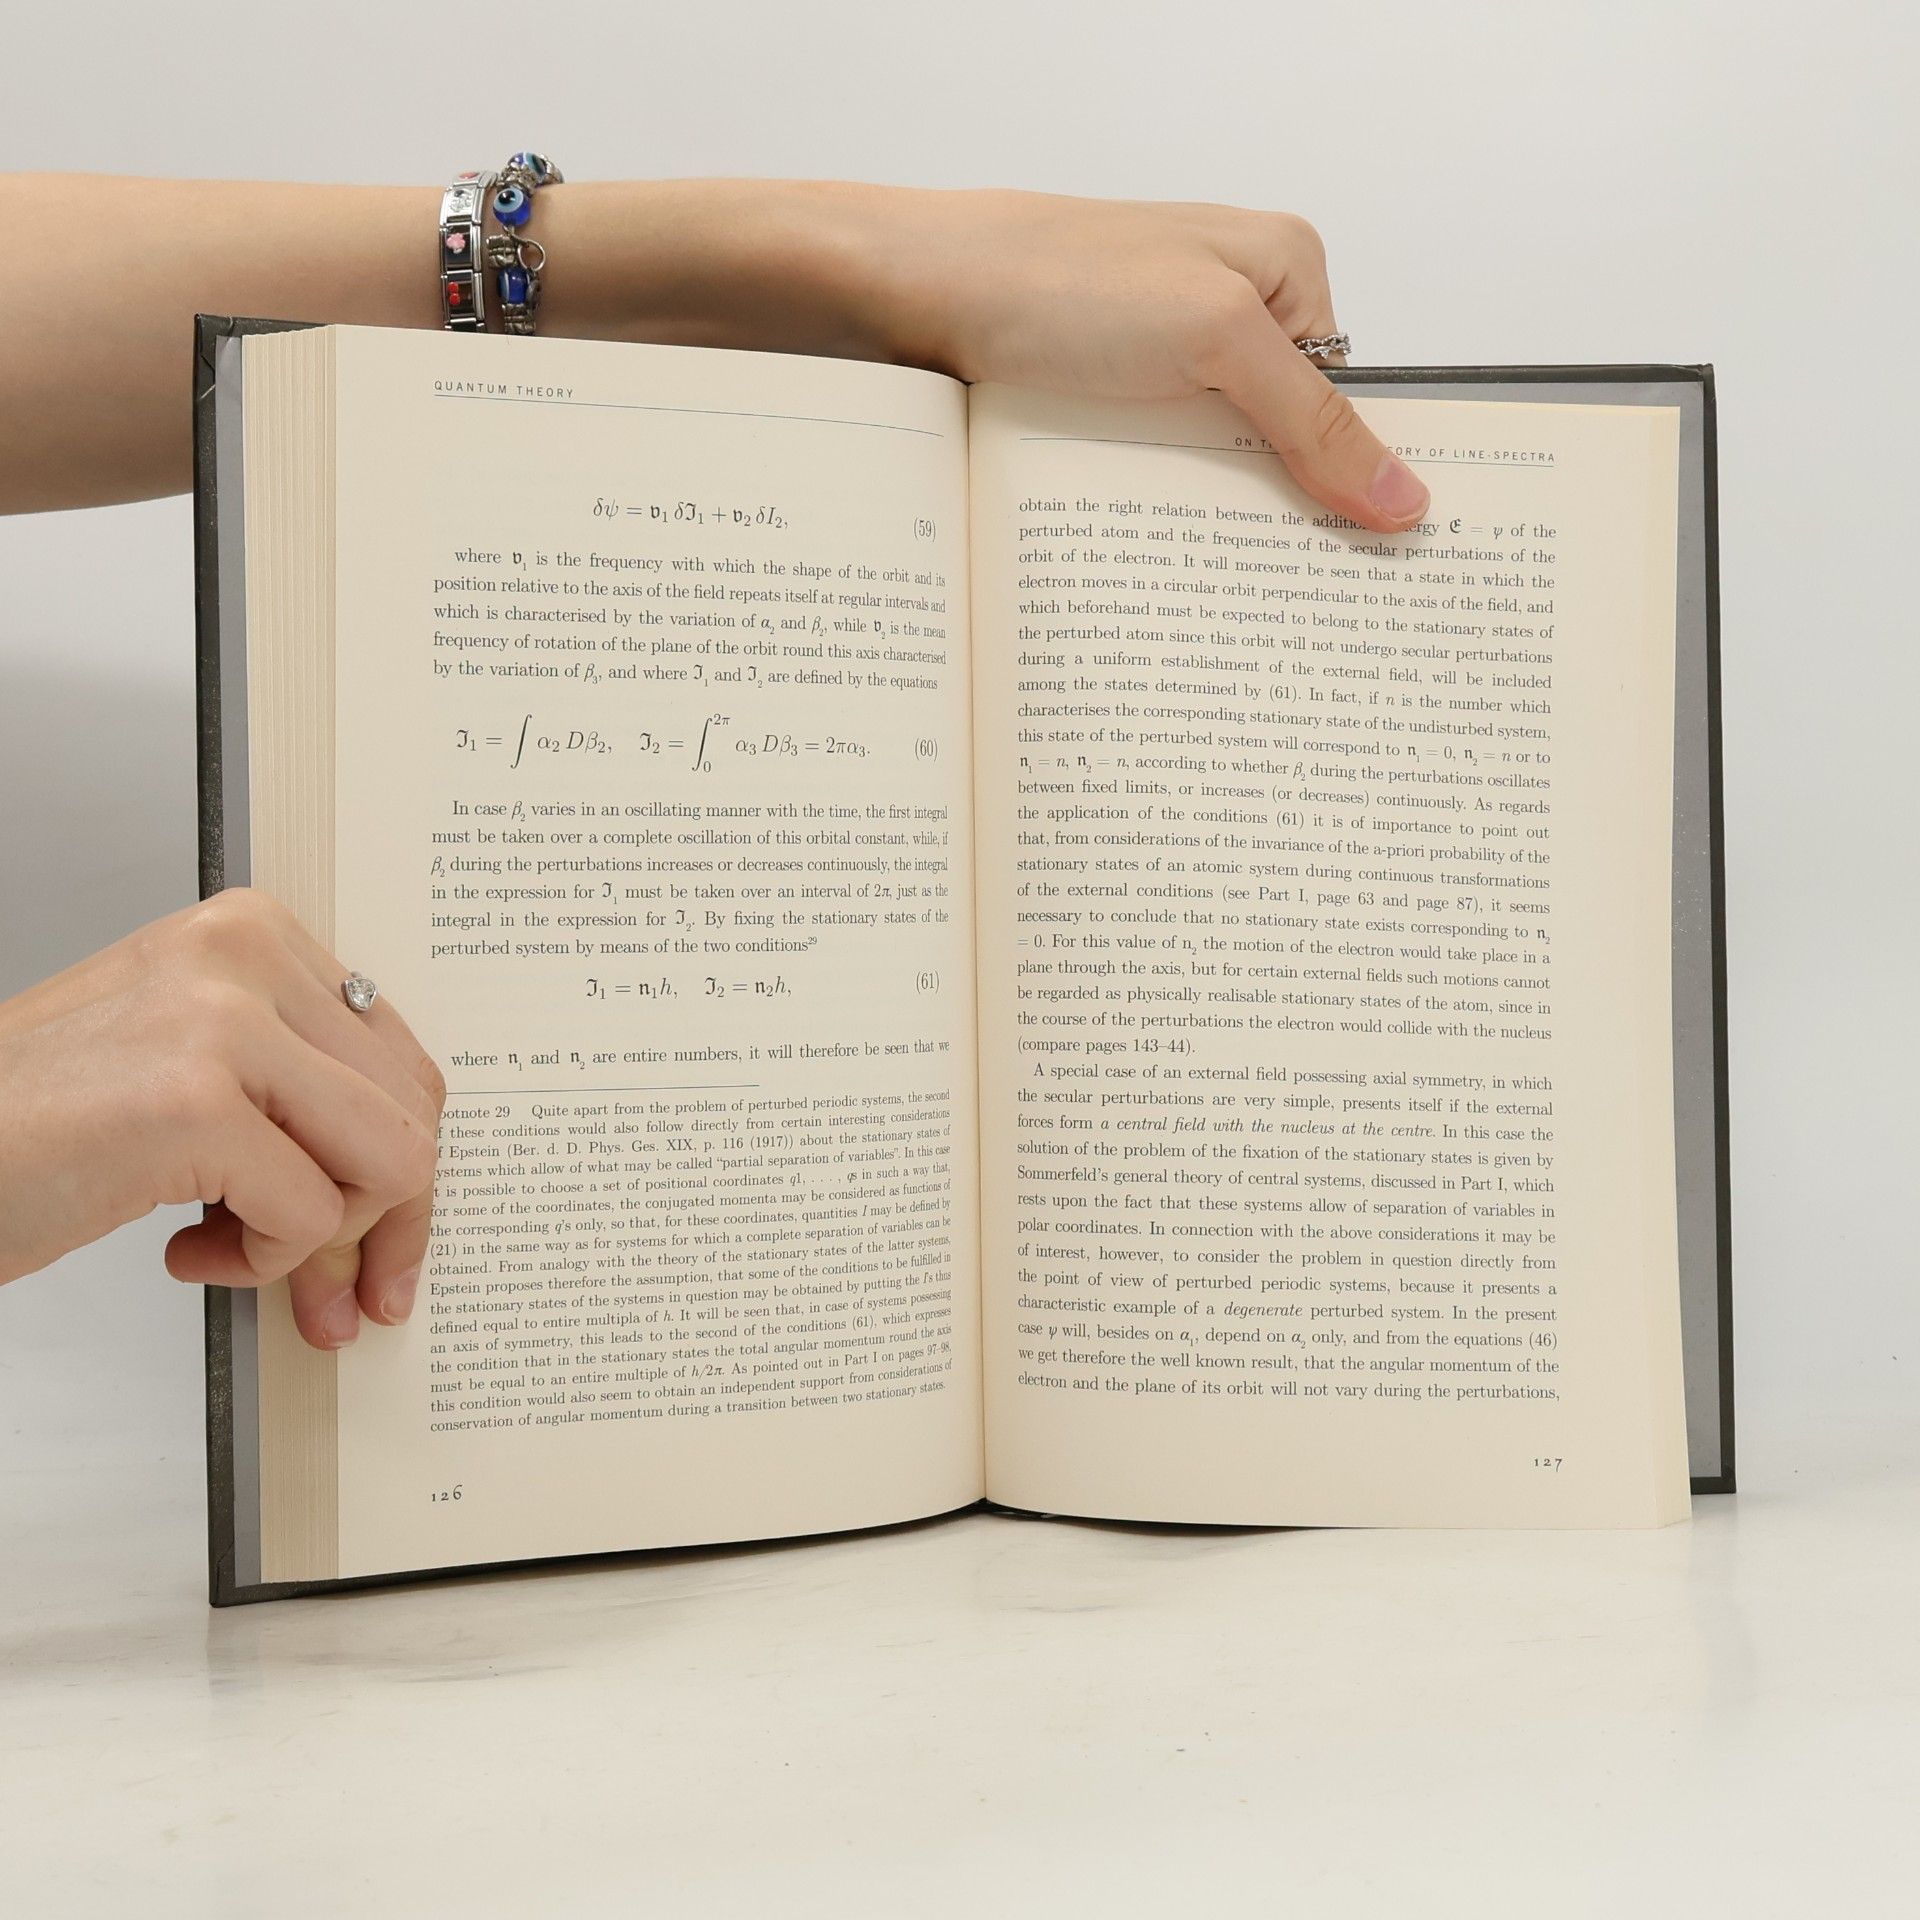 QUANTUM THEORY
δψ = 𝔳₁ δℑ₁ + 𝔳₂ δI₂, (59)
where 𝔳₁ is the frequency with which the shape of the orbit and its
position relative to the axis of the field repeats itself at regular intervals and
which is characterised by the variation of α₂ and β₂, while 𝔳₂ is the mean
frequency of rotation of the plane of the orbit round this axis characterised
by the variation of β₃, and where ℑ₁ and ℑ₂ are defined by the equations
ℑ₁ = ∫ α₂ Dβ₂, ℑ₂ = ∫₀^2π α₃ Dβ₃ = 2πα₃. (60)
In case β₂ varies in an oscillating manner with the time, the first integral
must be taken over a complete oscillation of this orbital constant, while, if
β₂ during the perturbations increases or decreases continuously, the integral
in the expression for ℑ₁ must be taken over an interval of 2π, just as the
integral in the expression for ℑ₂. By fixing the stationary states of the
perturbed system by means of the two conditions²⁹
ℑ₁ = 𝔫₁h, ℑ₂ = 𝔫₂h, (61)
where 𝔫₁ and 𝔫₂ are entire numbers, it will therefore be seen that we
ootnote 29 Quite apart from the problem of perturbed periodic systems, the second
f these conditions would also follow directly from certain interesting considerations
f Epstein (Ber. d. D. Phys. Ges. XIX, p. 116 (1917)) about the stationary states of
ystems which allow of what may be called “partial separation of variables”. In this case
t is possible to choose a set of positional coordinates q1, . . . , qs in such a way that,
for some of the coordinates, the conjugated momenta may be considered as functions of
the corresponding q’s only, so that, for these coordinates, quantities I may be defined by
(21) in the same way as for systems for which a complete separation of variables can be
obtained. From analogy with the theory of the stationary states of the latter systems,
Epstein proposes therefore the assumption, that some of the conditions to be fulfilled in
the stationary states of the systems in question may be obtained by putting the I’s thus
defined equal to entire multipla of h. It will be seen that, in case of systems possessing
an axis of symmetry, this leads to the second of the conditions (61), which expresses
the condition that in the stationary states the total angular momentum round the axis
must be equal to an entire multiple of h/2π. As pointed out in Part I on pages 97–98,
this condition would also seem to obtain an independent support from considerations of
conservation of angular momentum during a transition between two stationary states.
126
ON ORY OF LINE-SPECTRA
obtain the right relation between the 𝔈 = ψ of the
perturbed atom and the frequencies of the secular perturbations of the
orbit of the electron. It will moreover be seen that a state in which the
electron moves in a circular orbit perpendicular to the axis of the field, and
which beforehand must be expected to belong to the stationary states of
the perturbed atom since this orbit will not undergo secular perturbations
during a uniform establishment of the external field, will be included
among the states determined by (61). In fact, if n is the number which
characterises the corresponding stationary state of the undisturbed system,
this state of the perturbed system will correspond to 𝔫₁ = 0, 𝔫₂ = n or to
𝔫₁ = n, 𝔫₂ = n, according to whether β₂ during the perturbations oscillates
between fixed limits, or increases (or decreases) continuously. As regards
the application of the conditions (61) it is of importance to point out
that, from considerations of the invariance of the a-priori probability of the
stationary states of an atomic system during continuous transformations
of the external conditions (see Part I, page 63 and page 87), it seems
necessary to conclude that no stationary state exists corresponding to 𝔫₂
= 0. For this value of n₂ the motion of the electron would take place in a
plane through the axis, but for certain external fields such motions cannot
be regarded as physically realisable stationary states of the atom, since in
the course of the perturbations the electron would collide with the nucleus
(compare pages 143–44).
A special case of an external field possessing axial symmetry, in which
the secular perturbations are very simple, presents itself if the external
forces form a central field with the nucleus at the centre. In this case the
solution of the problem of the fixation of the stationary states is given by
Sommerfeld’s general theory of central systems, discussed in Part I, which
rests upon the fact that these systems allow of separation of variables in
polar coordinates. In connection with the above considerations it may be
of interest, however, to consider the problem in question directly from
the point of view of perturbed periodic systems, because it presents a
characteristic example of a degenerate perturbed system. In the present
case ψ will, besides on α₁, depend on α₂ only, and from the equations (46)
we get therefore the well known result, that the angular momentum of the
electron and the plane of its orbit will not vary during the perturbations,
127